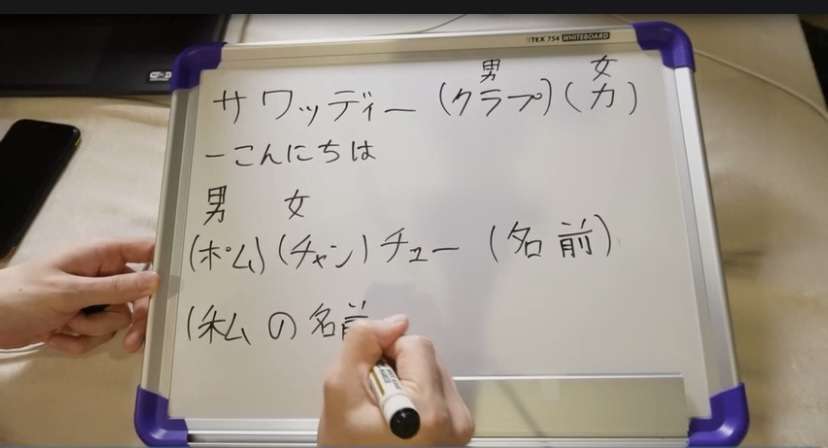 TKX 754 WHITEBOARD
男 女
サワッディー(クラプ)(カ)
ーこんにちは
男 女
(ポム)(チャン)チュー(名前)
(私の名前